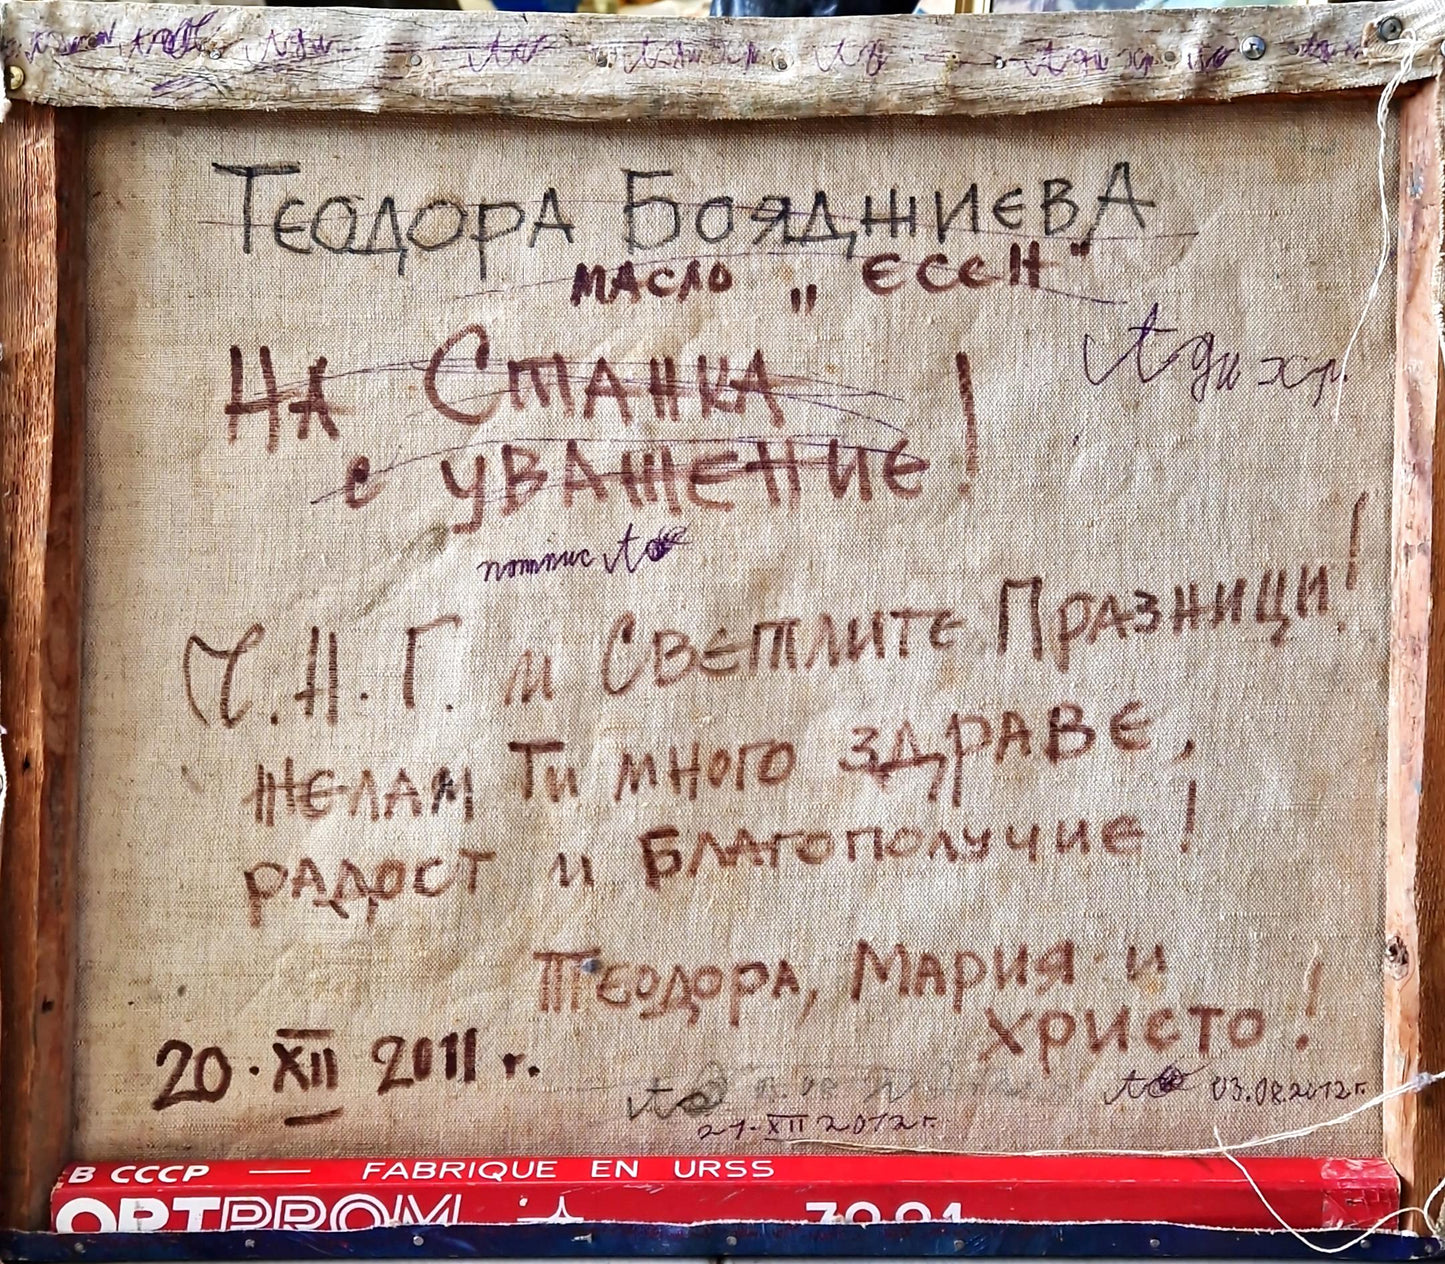 ТЕОДОРА БОЯДЖИЕВА
МАСЛО „ЕСЕН"
НА СТАНКА
С УВАЖЕНИЕ!
Ч.Н.Г. И СВЕТЛИТЕ ПРАЗНИЦИ!
ЖЕЛАМ ТИ МНОГО ЗДРАВЕ,
РАДОСТ И БЛАГОПОЛУЧИЕ!
ТЕОДОРА, МАРИЯ И
ХРИСТО!
20.XII 2011 г.
03.08.2012г.
21.XII 2012г.
В СССР — FABRIQUE EN URSS
ORTPROM